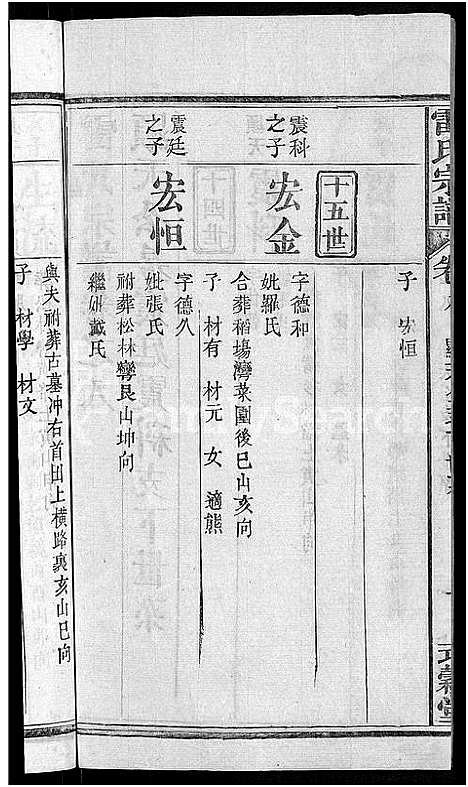 雷氏宗譜
卷
子 宏恒
十五世
震科之子
宏金
字德和
妣羅氏
合葬稻場灣菜園後巳山亥向
子 材有 材元 女 適熊
震廷之子
宏恒
字德久
妣張氏
祔葬松林彎艮山坤向
繼妣戴氏
與夫祔葬古墓冲右首田上橫路裏亥山巳向
子 材學 材文
十四世